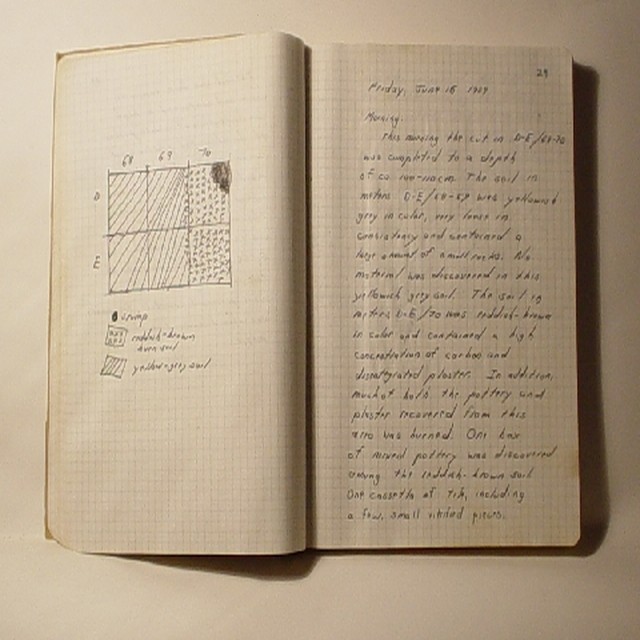 68 69 70
D
E
reddish-brown
burn soil
yellow-grey soil
29
Friday, June 15
Morning:
This morning the cut in D-E/68-70
was completed to a depth
of ca 100-110cm. The soil in
meters D-E/68-69 was yellowish
grey in color, very loose in
consistency and contained a
large amount of small rocks. No
material was discovered in this
yellowish grey soil. The soil in
meters D-E/70 was reddish-brown
in color and contained a high
concentration of carbon and
disintegrated plaster. In addition,
much of both the pottery and
plaster recovered from this
area was burned. One box
of mixed pottery was discovered
among the reddish-brown soil
One cassetta of tile, including
a few, small vitrified pieces.